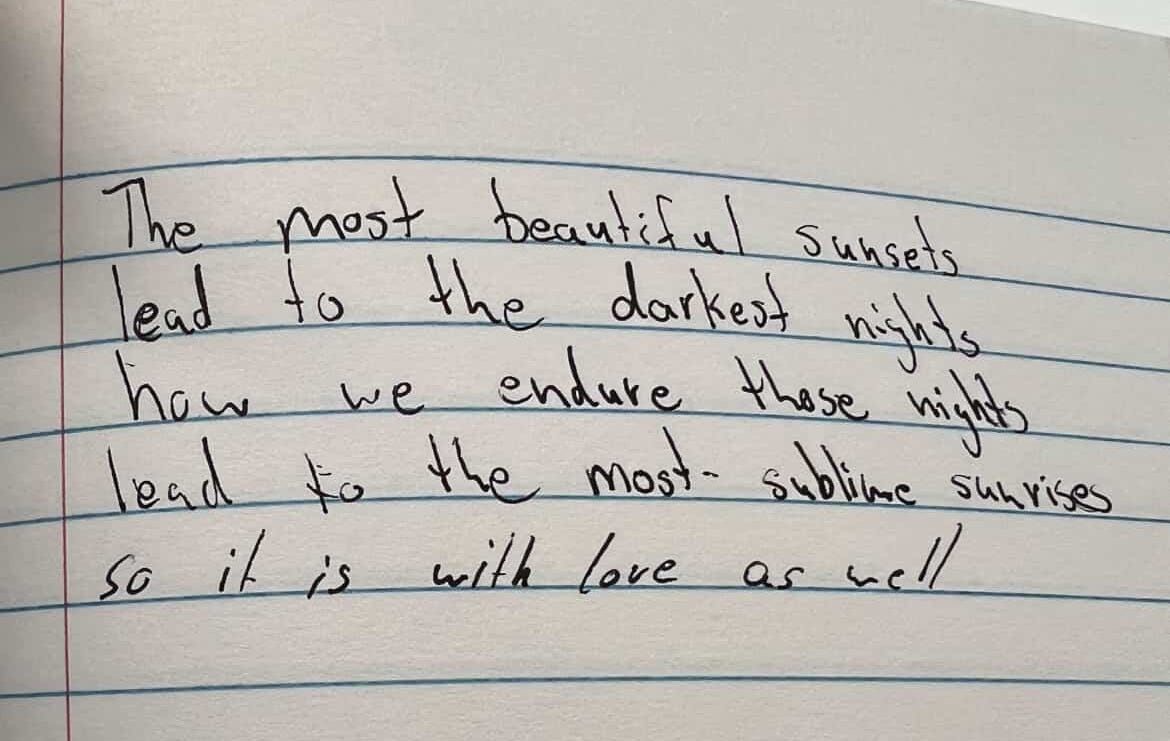 The most beautiful sunsets
lead to the darkest nights
how we endure those nights
lead to the most sublime sunrises
so it is with love as well